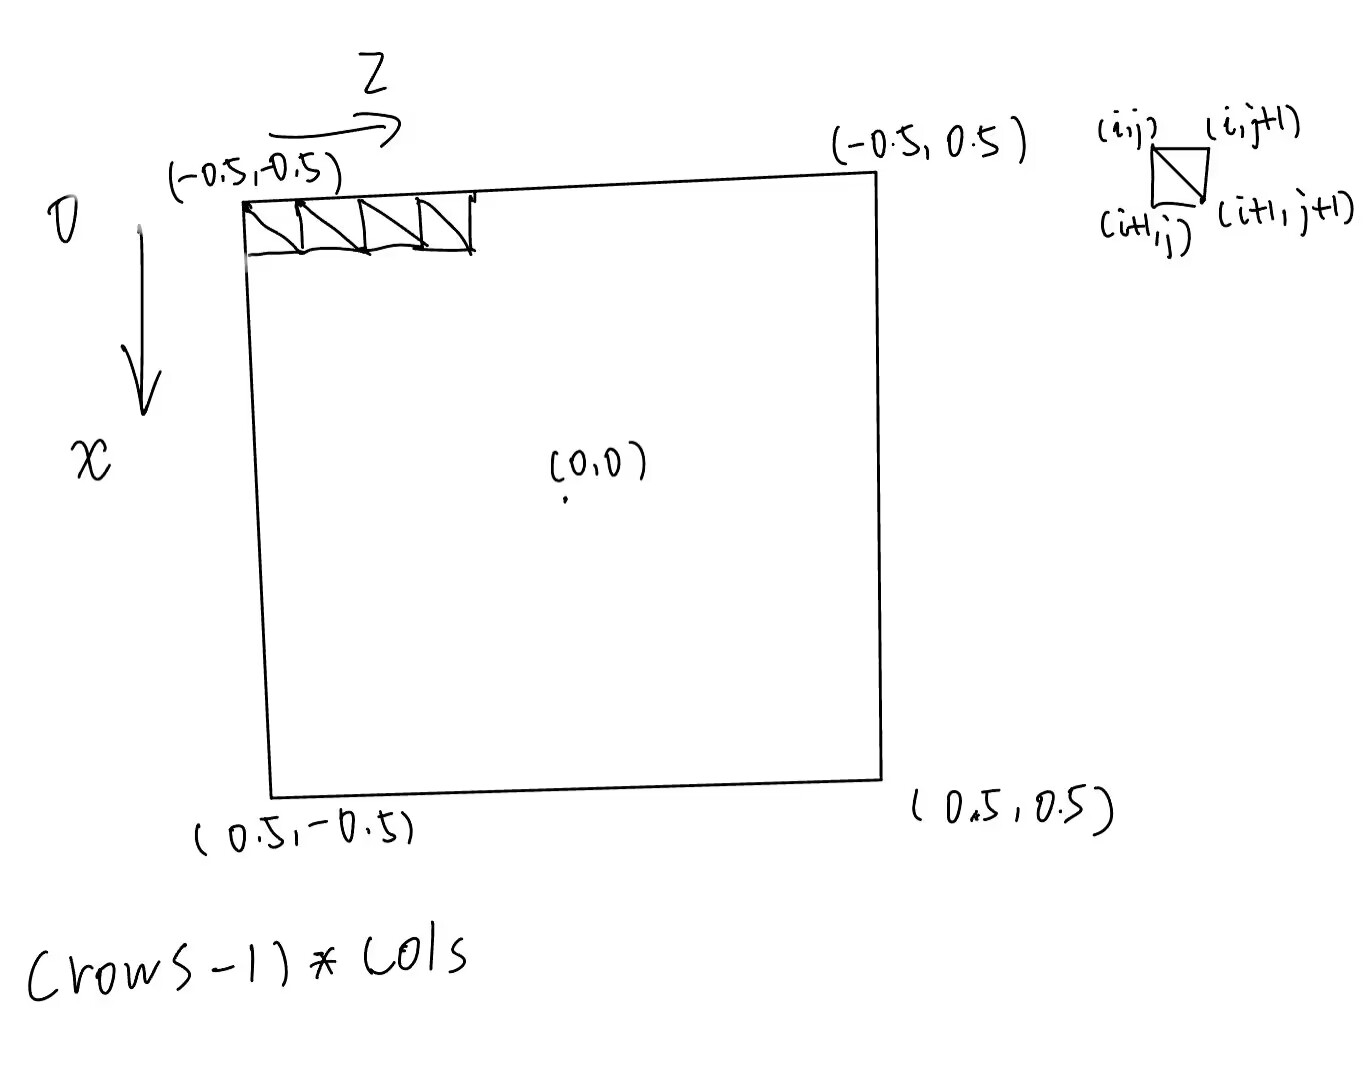 Z
(-0.5,-0.5)
(-0.5, 0.5)
(i,j)
(i,j+1)
0
(i+1,j)
(i+1,j+1)
x
(0,0)
(0.5,-0.5)
(0.5,0.5)
(rows-1)*cols